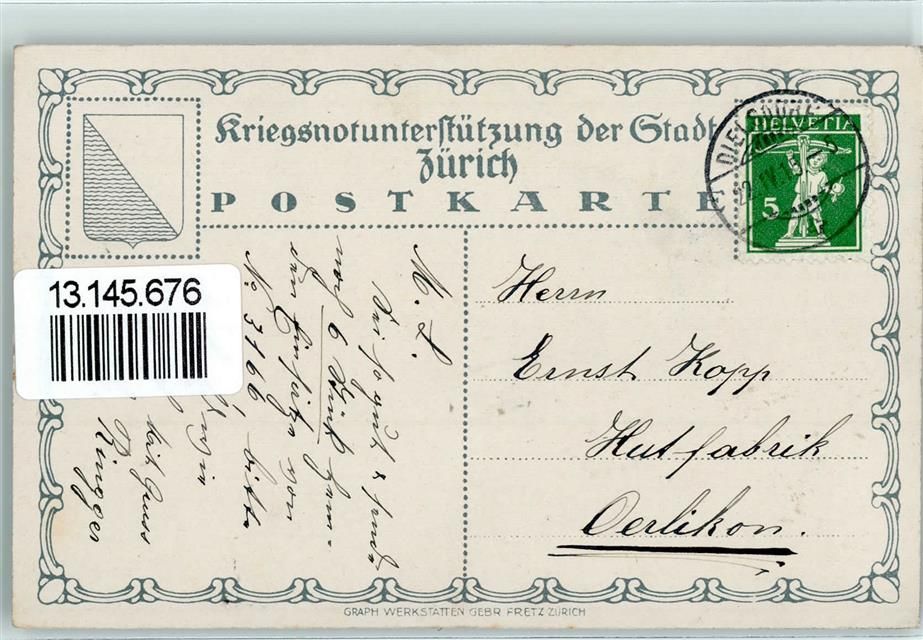 Kriegsnotunterstützung der Stadt
Zürich
POSTKARTE
HELVETIA
5
DIELSDORF
22.IV.15
13.145.676
M. L.
Sei so gut & sende
noch 6 Stück
von
No 3166 bitte
Mit Gruss
Ringger
Herrn
Ernst Kopp
Hutfabrik
Oerlikon.
GRAPH WERKSTÄTTEN GEBR FRETZ ZÜRICH